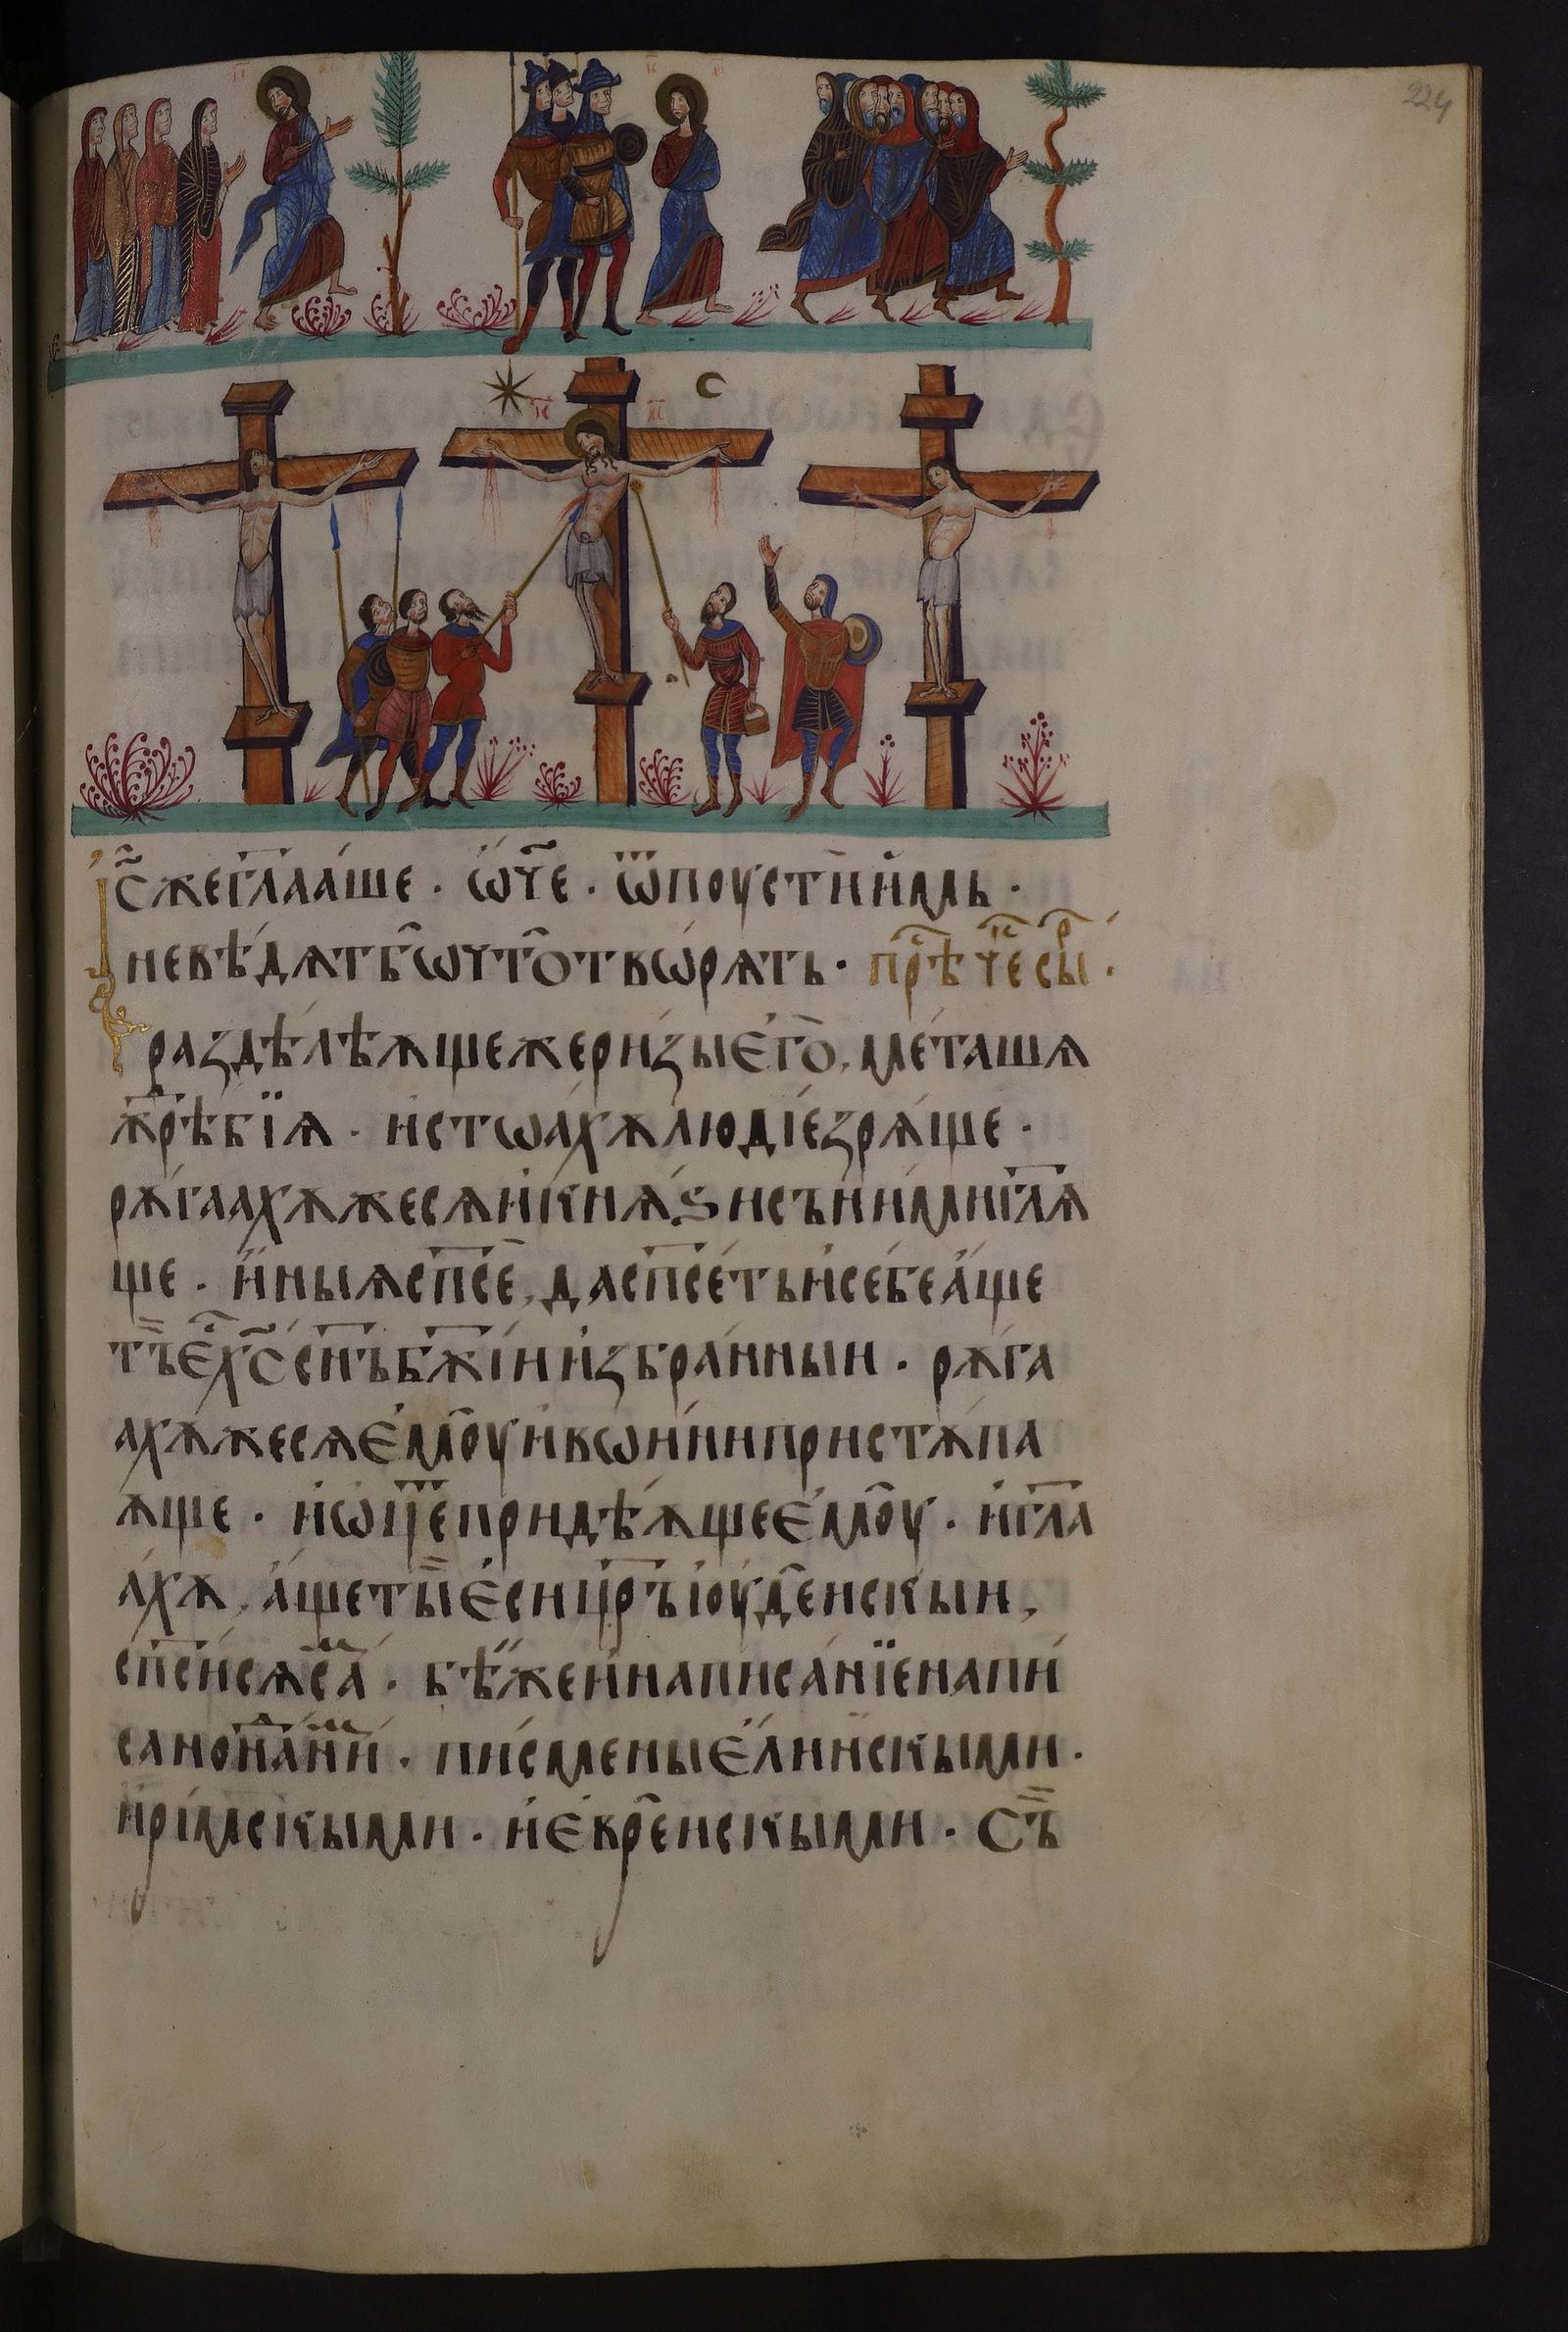 224
І҃С жеглаа́ше · ѡ҆́ч҃е · ѿпоустѝ и҆̀мь ·
невѣ́дѧтбѡ̑ что̑ творѧ́ть · прѣ̑ч҃е сы̑ ·
раздѣлѣ́ѫщежеризы́ Є҆го̀, ме́ташѧ
жрѣ́бїѧ · и҆стѡа́хѫ лю́діе зрѧ́ще ·
рѫ́гаахѫжесѧ и҆кнѧ́ѕи съни́ми гл҃ѧ
ще · и҆́ны́ѧ сп҃сѐ, да сп҃се́ть и҆ себе а҆́ще
тъ̏ Є҆̑ Х҃С сн҃ъ бж҃іи и҆збра́нныи · рѫ́га
ахѫжесѧ Є҆моу̑ и҆ вѡ́ини пристѫ́па
ѫще · и҆ ѡце҃ придѣ́ѫще Є҆моу̑ · и҆ гл҃а
а́хѫ, а҆́ще ты̏ Є҆си цр҃ъ і҆оуде̑искыи,
сп҃си́сѧ са́м · бѣ́ же и҆ написа́нїе напи́
сано над ни́м · пи́смены Є҆́лински́ми ·
и҆ рі́мскыми · и҆ Є҆вре̑искыми · Съ̏